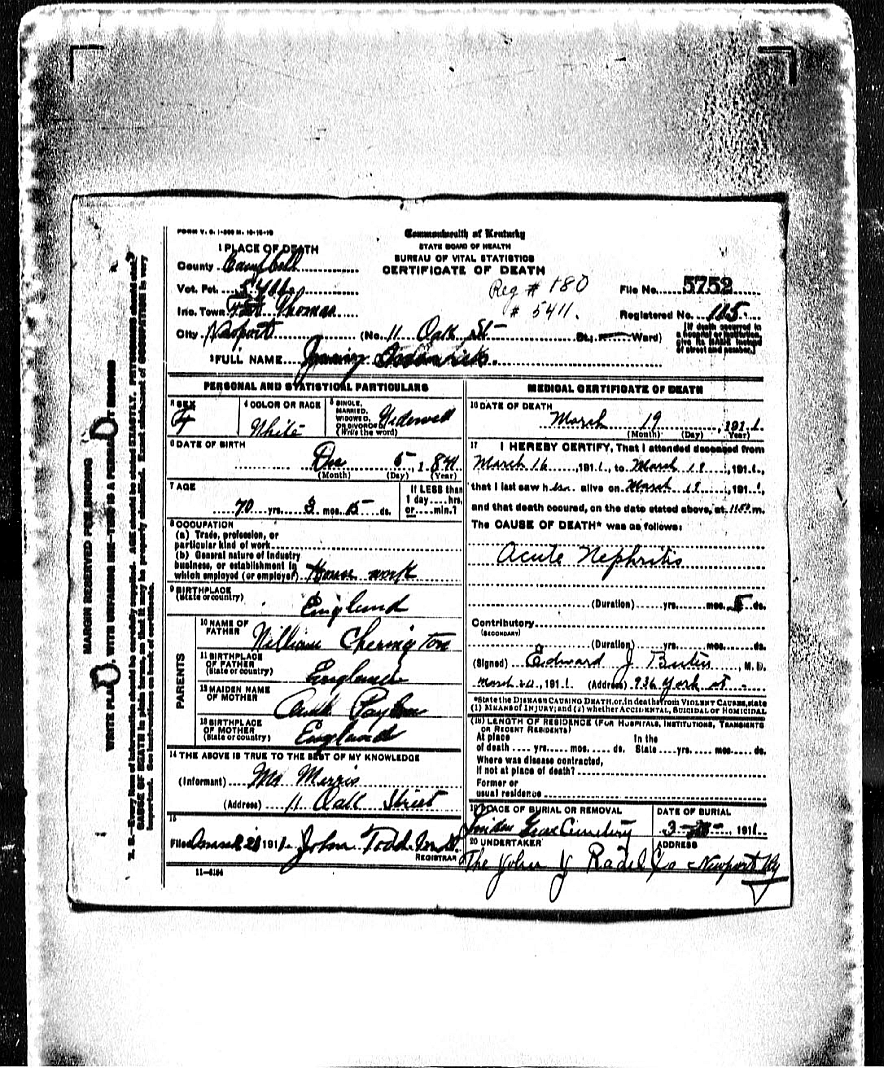 FORM V. S. 1-
Commonwealth of Kentucky
STATE BOARD OF HEALTH
BUREAU OF VITAL STATISTICS
CERTIFICATE OF DEATH
1 PLACE OF DEATH
County Campbell
Vot. Pct. 5411
Inc. Town Fort Thomas
City Newport (No. 11 Oak St St.; Ward)
Reg # 180
# 5411.
File No. 5752
Registered No. 115
(If death occurred in a hospital or institution, give its NAME instead of street and number.)
2 FULL NAME
PERSONAL AND STATISTICAL PARTICULARS
3 SEX F
4 COLOR OR RACE White
5 SINGLE, MARRIED, WIDOWED, OR DIVORCED (Write the word) Widowed
6 DATE OF BIRTH
Dec 5, 184
(Month) (Day) (Year)
7 AGE
70 yrs. 3 mos. 15 ds.
If LESS than 1 day....hrs. or....min.?
8 OCCUPATION
(a) Trade, profession, or particular kind of work
(b) General nature of industry business, or establishment in which employed (or employer) House work
9 BIRTHPLACE (State or country) England
PARENTS
10 NAME OF FATHER William Cherington
11 BIRTHPLACE OF FATHER (State or country) England
12 MAIDEN NAME OF MOTHER
13 BIRTHPLACE OF MOTHER (State or country) England
14 THE ABOVE IS TRUE TO THE BEST OF MY KNOWLEDGE
(Informant) Morris
(Address) 11 Oak Street
15
Filed 191 John Todd
REGISTRAR
11-6184
MEDICAL CERTIFICATE OF DEATH
16 DATE OF DEATH
March 19, 1911
(Month) (Day) (Year)
17 I HEREBY CERTIFY, That I attended deceased from
March 16, 1911, to March 19, 1911,
that I last saw her alive on March 19, 1911,
and that death occured, on the date stated above, at m.
The CAUSE OF DEATH* was as follows:
Acute Nephritis
(Duration) yrs. mos. 5 ds.
Contributory
(SECONDARY)
(Duration) yrs. mos. ds.
(Signed) Edward J. M. D.
March 191 (Address) 936 York st
*State the DISEASE CAUSING DEATH, or, in deaths from VIOLENT CAUSES, state
(1) MEANS OF INJURY; and (2) whether ACCIDENTAL, SUICIDAL or HOMICIDAL
(18) LENGTH OF RESIDENCE (FOR HOSPITALS, INSTITUTIONS, TRANSIENTS OR RECENT RESIDENTS)
At place of death yrs. mos. ds. In the State yrs. mos. ds.
Where was disease contracted, if not at place of death?
Former or usual residence
19 PLACE OF BURIAL OR REMOVAL
Cemetery
DATE OF BURIAL
1911
20 UNDERTAKER
The John J Radel Co
ADDRESS
Newport Ky
MARGIN RESERVED FOR BINDING